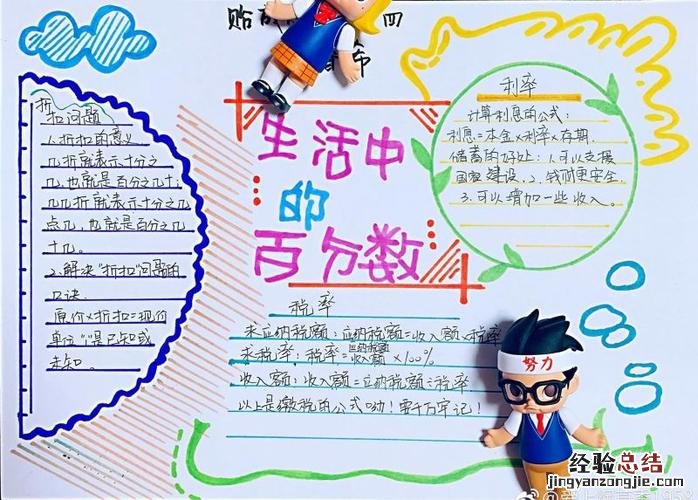 生活中
的
百分数
折
扣问题
1.折扣的意义
几折就表示十分之
几,也就是百分之几十;
几几折就表示十分之几
点几,也就是百分之几
十几。
2.解决"折扣"问题的
口诀
原价×折扣=现价
单位"1"是已知或
未知。
利率
计算利息的公式:
利息=本金×利率×存期.
储蓄的好处:1.可以支援
国家建设,2.钱财更安全
3.可以增加一些收入。
税率
求应纳税额:应纳税额=收入额×税率
求税率:税率=应纳税额/收入额×100%
收入额:收入额=应纳税额÷税率
以上是缴税的公式呦!要千万牢记!
努力
经验总结
jingyanzongjie.com